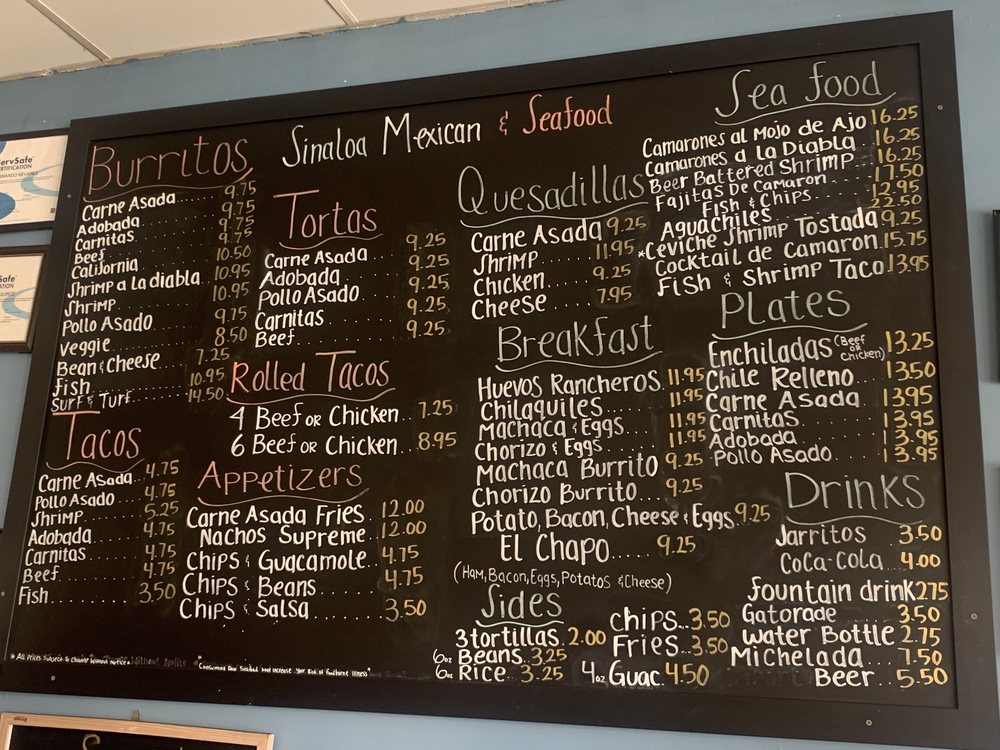 Sinaloa Mexican & Seafood
Burritos
Carne Asada..... 9.75
Adobada ....... 9.75
Carnitas ....... 9.75
Beef ........ 9.75
California ....... 10.50
Shrimp a la diabla . 10.95
Shrimp ........ 10.95
Pollo Asado ...... 9.75
Veggie ....... 8.50
Bean & Cheese ..... 7.25
Fish ......... 10.95
Surf & Turf..... 14.50
Tacos
Carne Asada... 4.75
Pollo Asado .... 4.75
Shrimp ....... 5.25
Adobada ...... 4.75
Carnitas ...... 4.75
Beef ........ 4.75
Fish ........ 3.50
Tortas
Carne Asada .... 9.25
Adobada ...... 9.25
Pollo Asado .... 9.25
Carnitas ...... 9.25
Beef........ 9.25
Rolled Tacos
4 Beef or Chicken.. 7.25
6 Beef or Chicken... 8.95
Appetizers
Carne Asada Fries 12.00
Nachos Supreme.. 12.00
Chips & Guacamole. 4.75
Chips & Beans ..... 4.75
Chips & Salsa ..... 3.50
Quesadillas
Carne Asada 9.25
Shrimp ..... 11.95
Chicken .... 9.25
Cheese ..... 7.95
Breakfast
Huevos Rancheros. 11.95
Chilaquiles..... 11.95
Machaca & Eggs... 11.95
Chorizo & Eggs.... 11.95
Machaca Burrito 9.25
Chorizo Burrito... 9.25
Potato, Bacon, Cheese & Eggs. 9.25
El Chapo..... 9.25
(Ham, Bacon, Eggs, Potatos & Cheese)
Sides
3 tortillas. 2.00
6oz Beans. 3.25
6oz Rice.. 3.25
chips.. 3.50
Fries.. 3.50
4oz Guac. 4.50
Sea food
Camarones al Mojo de Ajo 16.25
Camarones a la Diabla .. 16.25
Beer Battered Shrimp... 16.25
Fajitas De Camaron .... 17.50
Fish & Chips..... 12.95
Aguachiles ...... 22.50
*Ceviche Shrimp Tostada 9.25
Cocktail de Camaron. 15.75
Fish & Shrimp Taco 13.95
Plates
Enchiladas (Beef or Chicken) 13.25
Chile Relleno... 13.50
Carne Asada .. 13.95
Carnitas...... 13.95
Adobada ...... 13.95
Pollo Asado .... 13.95
Drinks
Jarritos 3.50
Coca-Cola .. 4.00
fountain drink 2.75
Gatorade .... 3.50
water Bottle 2.75
Michelada ... 7.50
Beer.. 5.50
* All Prices Subject to Change Without Notice *